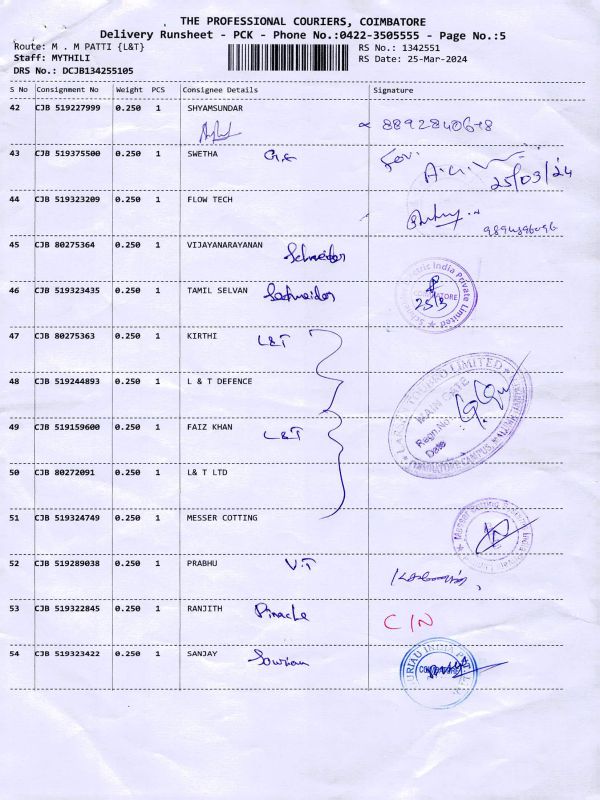 THE PROFESSIONAL COURIERS, COIMBATORE
Delivery Runsheet - PCK - Phone No.:0422-3505555 - Page No.:5
Route: M . M PATTI {L&T} RS No.: 1342551
Staff: MYTHILI RS Date: 25-Mar-2024
DRS No.: DCJB134255105
S No Consignment No Weight PCS Consignee Details Signature
42 CJB 519227999 0.250 1 SHYAMSUNDAR
43 CJB 519375500 0.250 1 SWETHA
25/03/24
44 CJB 519323209 0.250 1 FLOW TECH
9894896096
45 CJB 80275364 0.250 1 VIJAYANARAYANAN Schneider
46 CJB 519323435 0.250 1 TAMIL SELVAN Schneider
25/3
47 CJB 80275363 0.250 1 KIRTHI L&T
48 CJB 519244893 0.250 1 L & T DEFENCE
LARSEN & TOUBRO LIMITED
MAIN GATE
Regn.No
Date
COIMBATORE CAMPUS
49 CJB 519159600 0.250 1 FAIZ KHAN L&T
50 CJB 80272091 0.250 1 L& T LTD
51 CJB 519324749 0.250 1 MESSER COTTING
52 CJB 519289038 0.250 1 PRABHU V.T
53 CJB 519322845 0.250 1 RANJITH Pinacle C/N
54 CJB 519323422 0.250 1 SANJAY Souriau